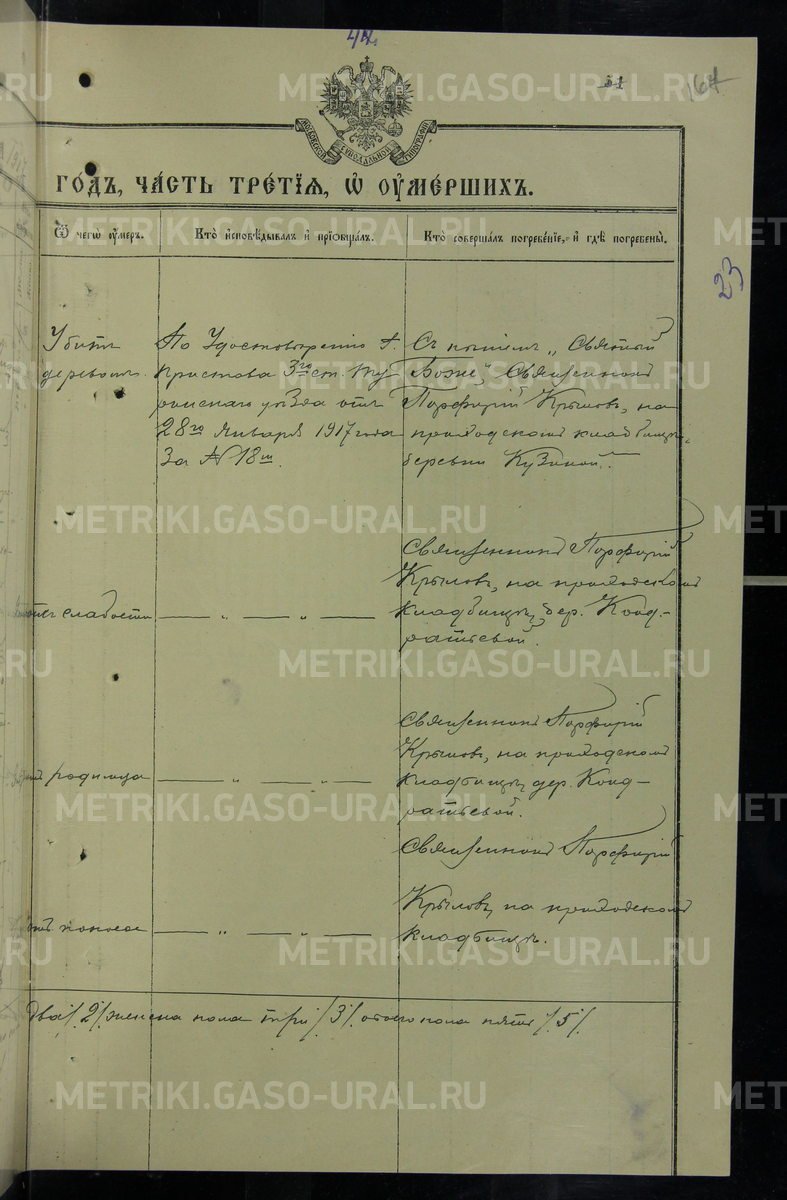 44
31
164
МОСКОВСКОЙ СИНОДАЛЬНОЙ ТИПОГРАФІИ
METRIKI.GASO-URAL.RU
ГО́ДЪ, ЧА́СТЬ ТРЕ́ТІѦ, Ѡ҆ ОУ҆МЕ́РШИХЪ.
Ѿ чегѡ̀ ᲂу҆́меръ.
Кто̀ и҆сповѣ́дывалъ и҆ прїѡбща́лъ.
Кто̀ соверша́лъ погребе́нїе, и҆ гдѣ̀ погребены̀.
23
Убитъ
деревомъ.
По Удостовѣренію г.
Пристава 3го ст. Ту
ринскаго уѣзда отъ
28го Января 1917 года
за № 18м.
Съ пѣніемъ „Святый
Боже", Священникъ
Порфирій Крыловъ, на
приходскомъ кладбищѣ,
деревни Кузиной.
отъ слабости
— „ — „ —
Священникъ Порфирій
Крыловъ, на приходскомъ
кладбищѣ, дер. Конд-
ратьевой.
родимца
— „ — „ —
Священникъ Порфирій
Крыловъ, на приходскомъ
кладбищѣ, дер. Конд-
ратьевой.
отъ поноса
— „ — „ —
Священникъ Порфирій
Крыловъ, на приходскомъ
кладбищѣ.
два /2/ женска пола три /3/ обоего пола пять /5/